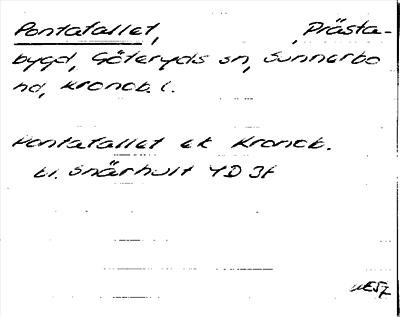 Pontafallet, Prästa-
bygd, Göteryds sn, Sunnerbo
hd, Kronob. l.
Pontafallet ek Kronob.
bl. Snärhult 4D 3f